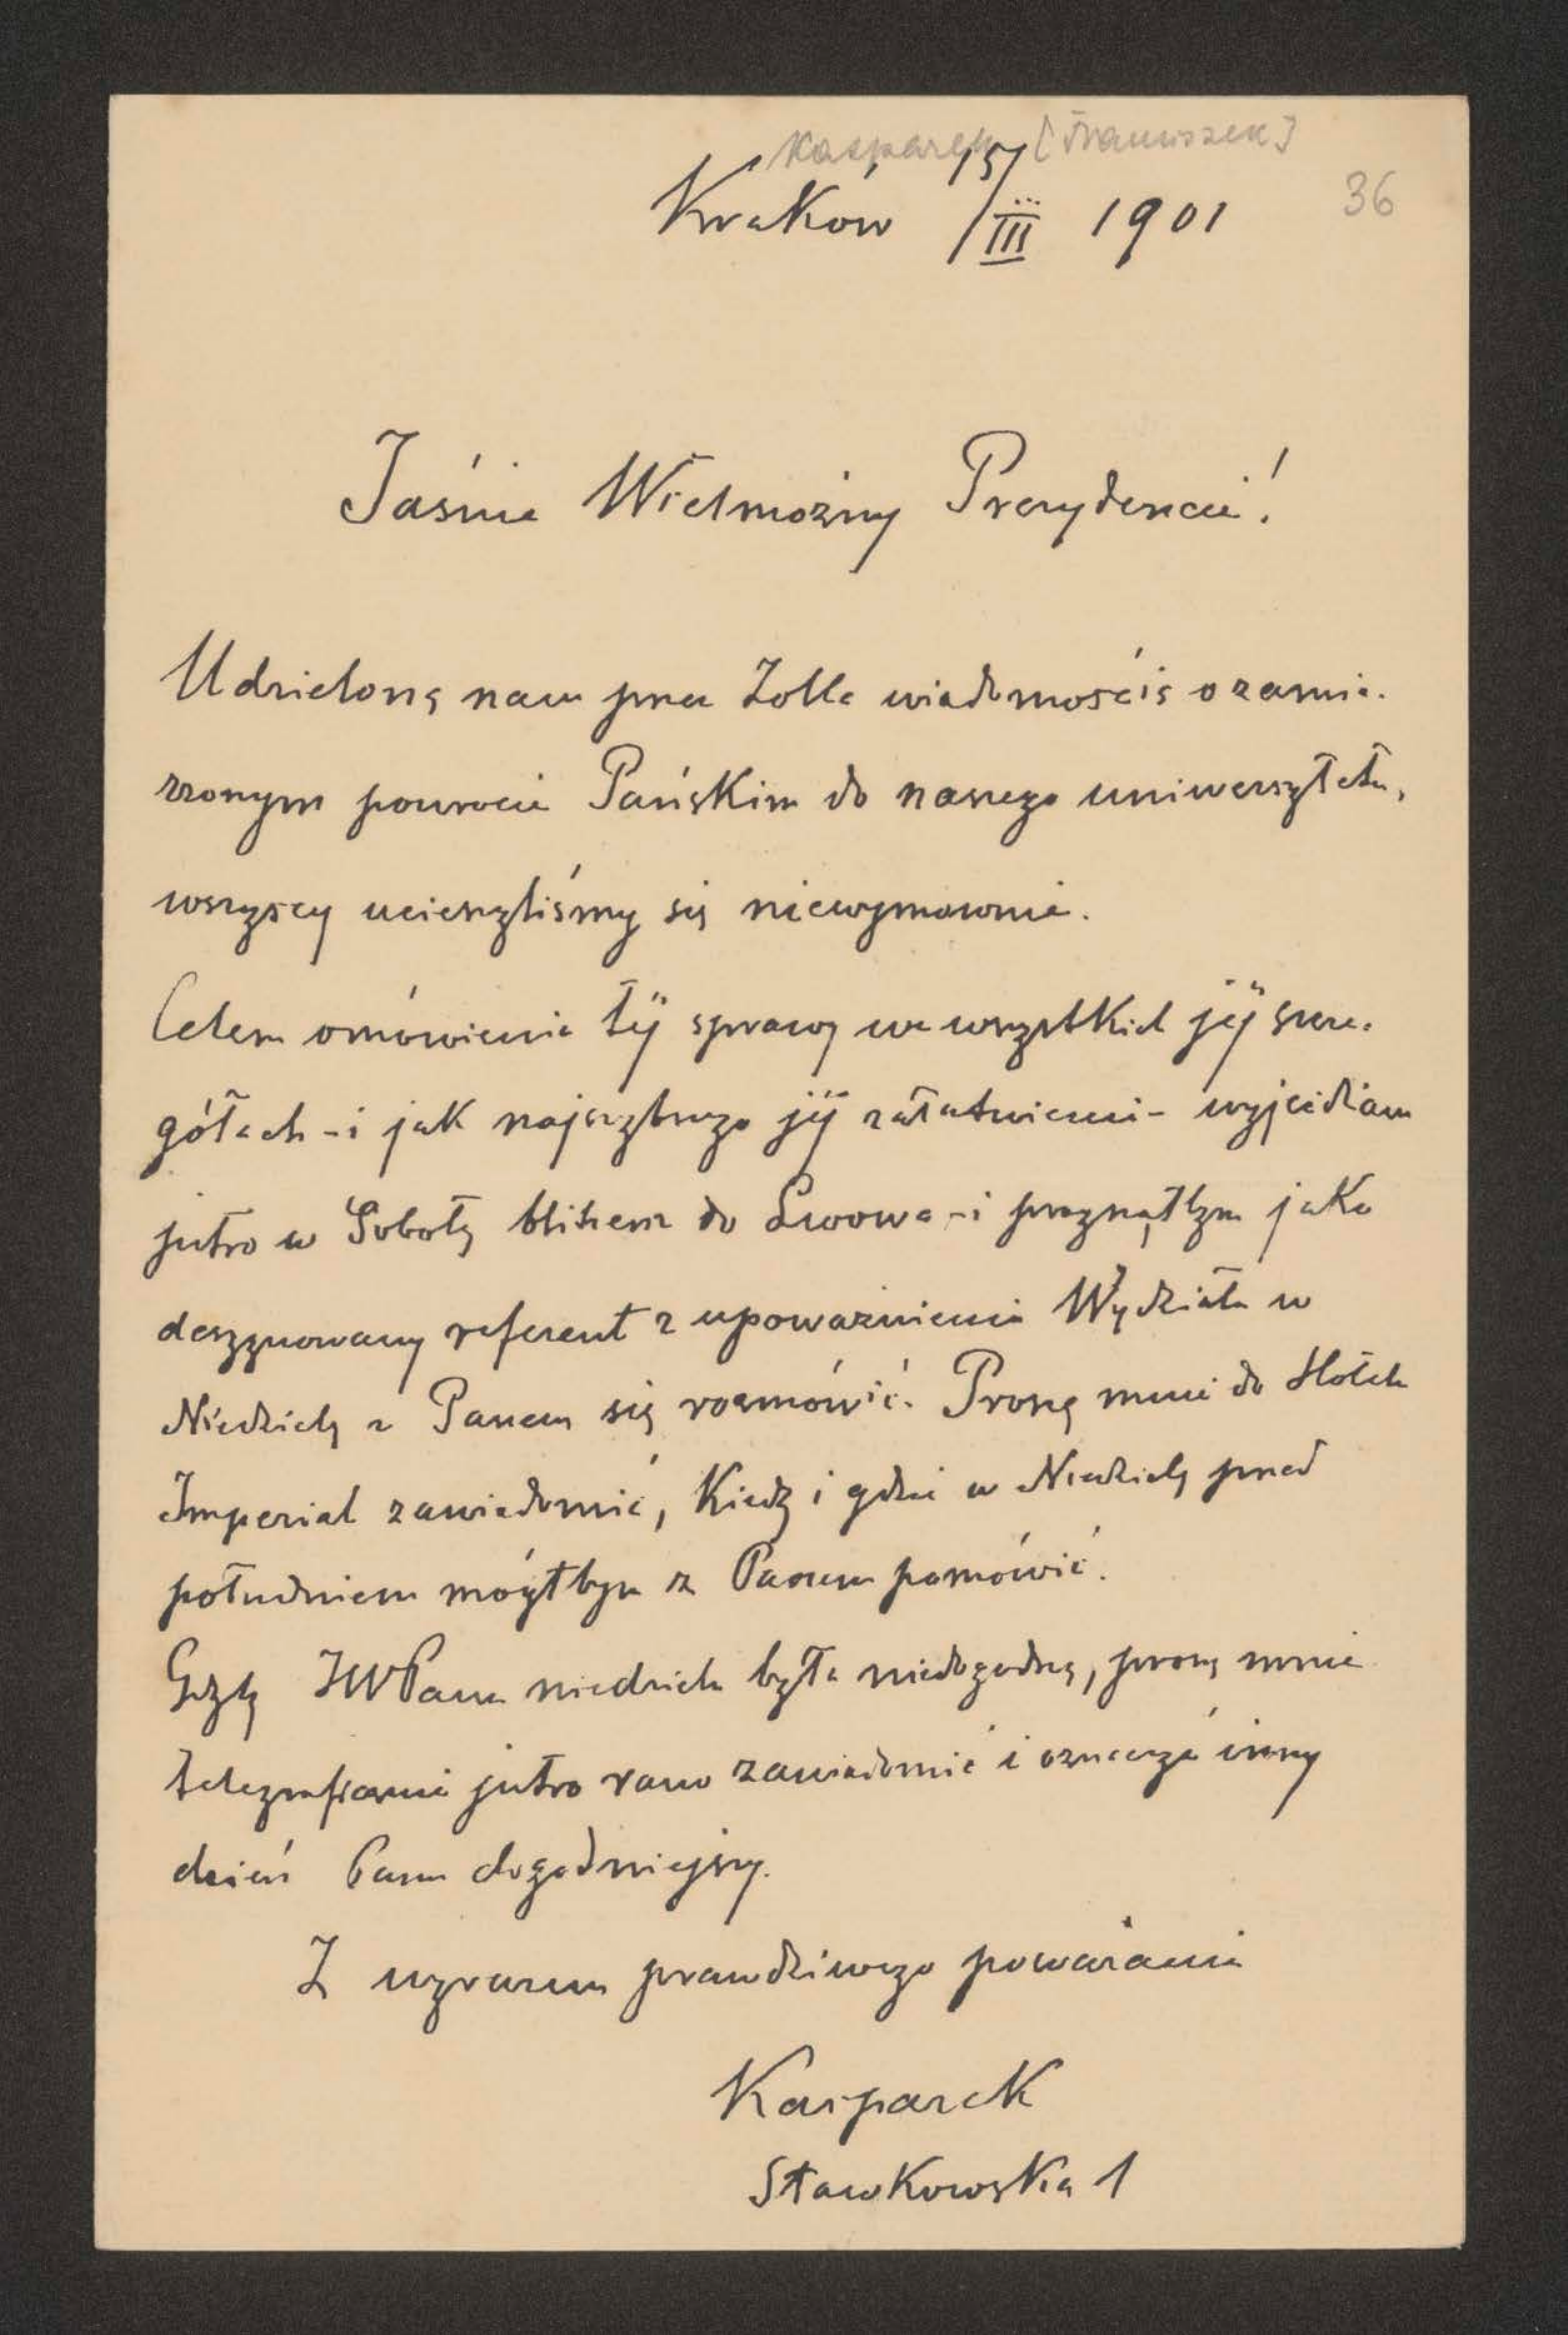 Kasparek [Franciszek]
Kraków 15/III 1901
36
Jaśnie Wielmożny Prezydencie!
Udzieloną nam przez Zolla wiadomością o zamie-
rzonym powrocie Pańskim do naszego uniwersytetu,
wszyscy ucieszyliśmy się niewymownie.
Celem omówienia tÿ sprawy we wszystkich jÿ szcze-
gółach - i jak najszybszego jÿ załatwienia - wyjeżdżam
jutro w Sobotę do Lwowa - i pragnąłbym jako
desygnowany referent z upoważnienia Wydziału w
Niedzielę z Panem się rozmówić. Proszę mnie do Hotelu
Imperial zawiadomić, kiedy i gdzie w Niedzielę przed
południem mógłbym z Panem pomówić.
Gdyby JWPanu niedziela była niedogodną, proszę mnie
telegraficznie jutro rano zawiadomić i oznaczyć inny
dzień Panu dogodniejszy.
Z wyrazem prawdziwego poważania
Kasparek
Sławkowska 1